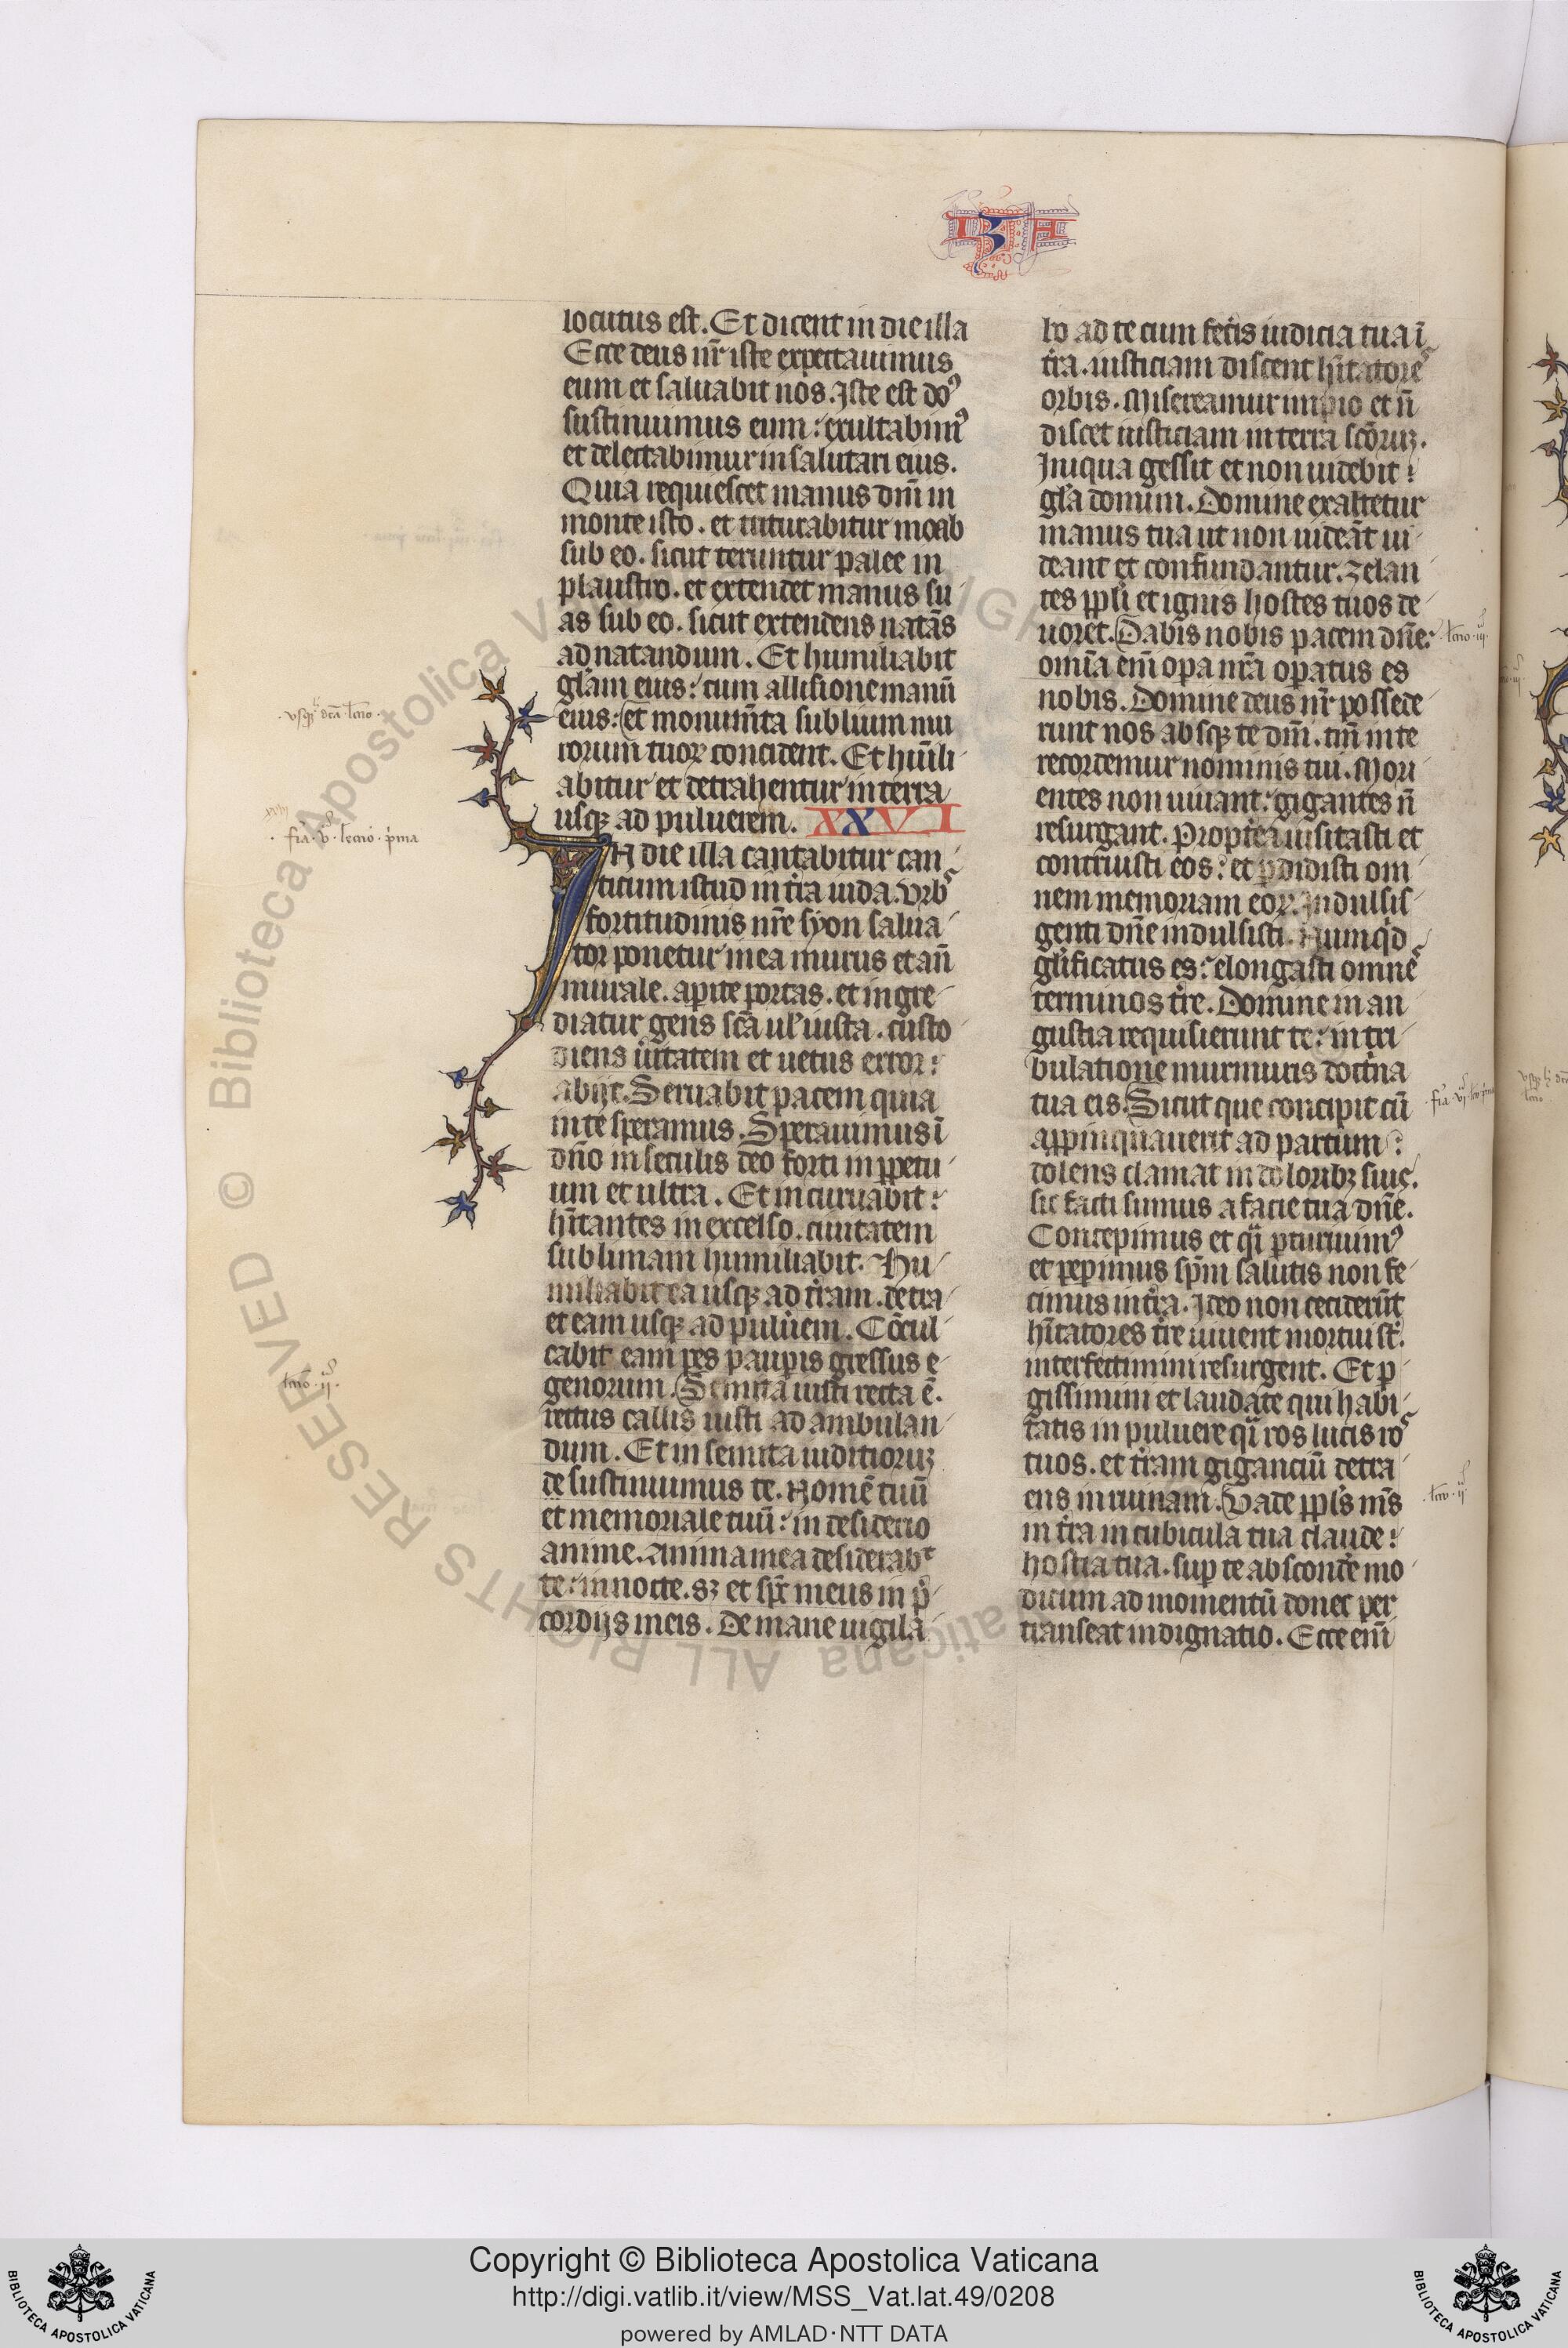 locutus est. Et dicent in die illa
Ecce deus nr̄ iste expectauimus
eum et saluabit nos. Iste est doꝰ
sustinuimus eum: exultabimꝰ
et delectabimur in salutari eius.
Quia requiescet manus dn̄i in
monte isto. et triturabitur moab
sub eo. sicut teruntur palee in
plaustro. et extendet manus su
as sub eo. sicut extendens natās
ad natandum. Et humiliabit
gl̄am eius: cum allisione manū
eius: et monum̄ta sublium mu
rorum tuoꝝ concident. Et hum̄li
abitur et detrahentur in terra
usqꝫ ad puluerem. XXVI
IN die illa cantabitur can
ticum istud in tr̄a iuda. Vrbs
fortitudinis nr̄e syon salua
tor ponetur in ea murus et an̄
murale. aperite portas. et ingre
diatur gens sc̄a ul' iusta. custo
diens ūitatem et uetus error:
abijt. Seruabit pacem quia
in te speramus. Sperauimus ī
dn̄o in seculis deo forti in ꝑpetu
um et ultra. Et incuruabit:
hītantes in excelso. ciuitatem
sublimam humiliabit. Hu
miliabit ea usqꝫ ad tr̄am. detra
et eam usqꝫ ad puluēem. Cōcul
cabit eam pes pauꝑis gressus e
genorum. Semita iusti recta ē.
rectus callis iusti ad ambulan
dum. Et in semita iuditioruꝫ
de sustinuimus te. Nomē tuū
et memoriale tuū: in desiderio
anime. Anima mea desiderabᵗ
te: in nocte. sꝫ et spr̄ meus in p̄
cordijs meis. De mane uigila
IZA
bo ad te cum fec̄is iudicia tua ī
tr̄a. iusticiam discent hītatores
orbis. Misereamur impio et n̄
discet iusticiam in terra scōruꝫ.
Iniqua gessit et non uidebit:
gl̄a domini. Domine exaltetur
manus tua ut non uideāt ui
deant et confundantur. zelan
tes ppl̄i et ignis hostes tuos de
uoret. Dabis nobis pacem dn̄e:
omīa en̄i oꝑa nr̄a oꝑatus es
nobis. Domine deus nr̄ possede
runt nos absqꝫ te dn̄i. tm̄ in te
recordemur nominis tui. Mori
entes non uiuant: gigantes n̄
resurgant. Proptea uisitasti et
contriuisti eos: et ꝑdidisti om
nem memoriam eoꝝ. Indulsis
genti dn̄e indulsisti. Numqͥd
gl̄ificatus es: elongasti omnes
terminos tr̄e. Domine in an
gustia requisierunt te: in tri
bulatione murmuris doctrīna
tua eis. Sicut que concipit cū
appinquauerit ad partum:
dolens clamat in doloribꝫ suis.
sic facti sumus a facie tua dn̄e.
Concepimus et qͣi ꝑturiuimꝰ
et peꝑimus sp̄m salutis non fe
cimus in tr̄a. Ideo non cecider̄t
hītatores tr̄e uiuent mortui st̄.
interfecti mini resurgent. Et ꝑ
gissimini et laudate qui habi
tatis in puluere qͣi ros lucis ros
tuos. et tr̄am gigantiū detra
ens in ruinam. Vade ppl̄s m̄s
in tr̄a in cubicula tua claude:
hostia tua. suꝑ te absconde mo
dicum ad momentū donec per
transeat indignatio. Ecce en̄i
fr̄ia v lectio pͥma
lectio ij
lectio iij
lectio ij
Copyright © Biblioteca Apostolica Vaticana
http://digi.vatlib.it/view/MSS_Vat.lat.49/0208
powered by AMLAD·NTT DATA
BIBLIOTECA APOSTOLICA VATICANA
BIBLIOTECA APOSTOLICA VATICANA
© Biblioteca Apostolica Vaticana ALL RIGHTS RESERVED